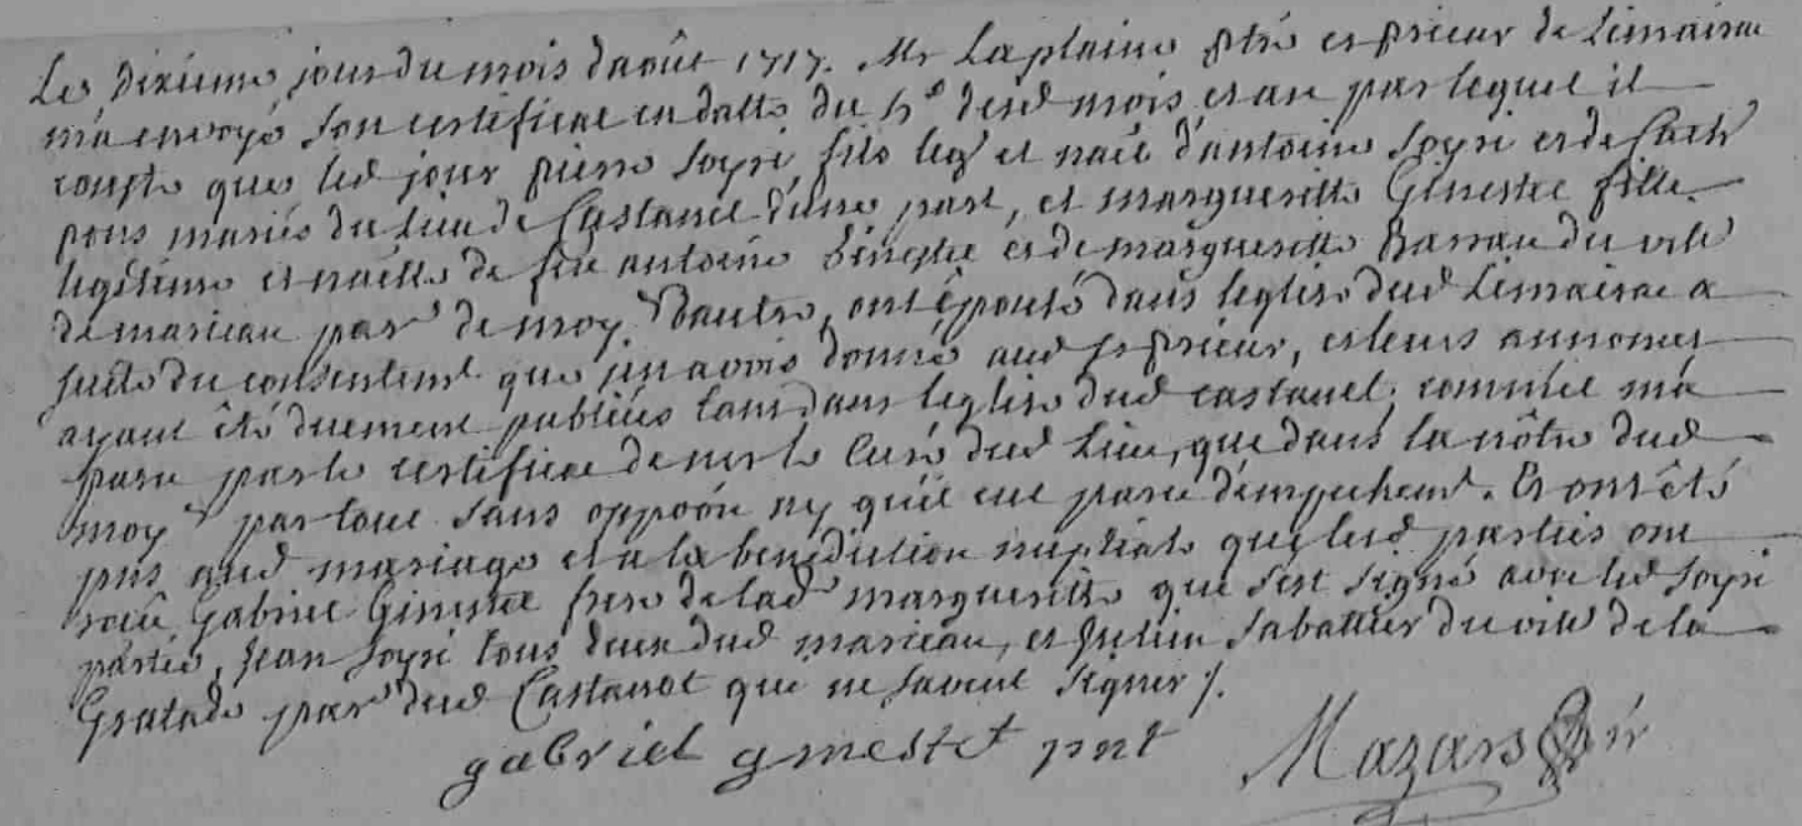 Le dixieme jour du mois d'août 1717. Mr Laplaine ptre et prieur de Limairac
m'a envoyé son certificat en datte du 5e desd mois et an par lequel il
conste que led jour pierre Soyri fils leg et naël d'antoine Soyri et de Cath
pous mariés du lieu de Castanet d'une part, et margueritte Ginestet fille
legitime et naëlle de feu antoine Ginestet et de margueritte Barrau du vile
de maricau par de moy d d'autre, ont épousé dans leglise dud Limairac a
suite du consentemt que j'en avois donné aud sr prieur, et leurs annonces
ayant été duement publiées tant dans leglise dud castanet, comme il m'a
paru par le certificat de mr le Curé dud lieu, que dans la nôtre dud
moy d par tout sans oppoôn ny qu'il eut paru d'empechemt. Et ont été
pns aud mariage et a la benediction nuptiale que lesd parties ont
reçû, Gabriel Ginestet frere de lad margueritte qui s'est signé avec led Soyri
partie, Jean Soyri tous deux dud maricau, et Julien Sabattier du vile de la
Gratade par dud Castanet qui ne savent signer /.
gabriel ginestet pnt Mazars